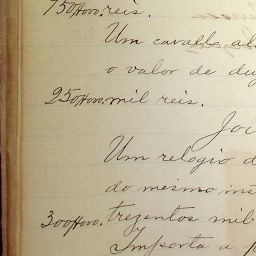 750$000. reis.
Um cavallo al
o valor de du
250$000. mil reis.
Joi
Um relogio d
do mesmo, me
300$000. trezentos mil
Importa a p